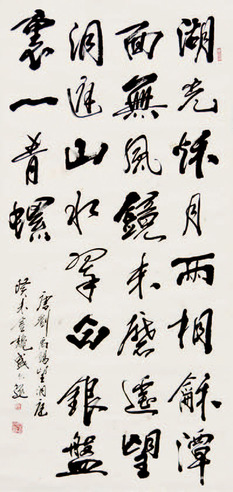 湖光秋月兩相龢潭
面無風鏡未磨遙望
洞庭山水翠白銀盤
裏一青螺
唐劉禹錫望洞庭
癸未